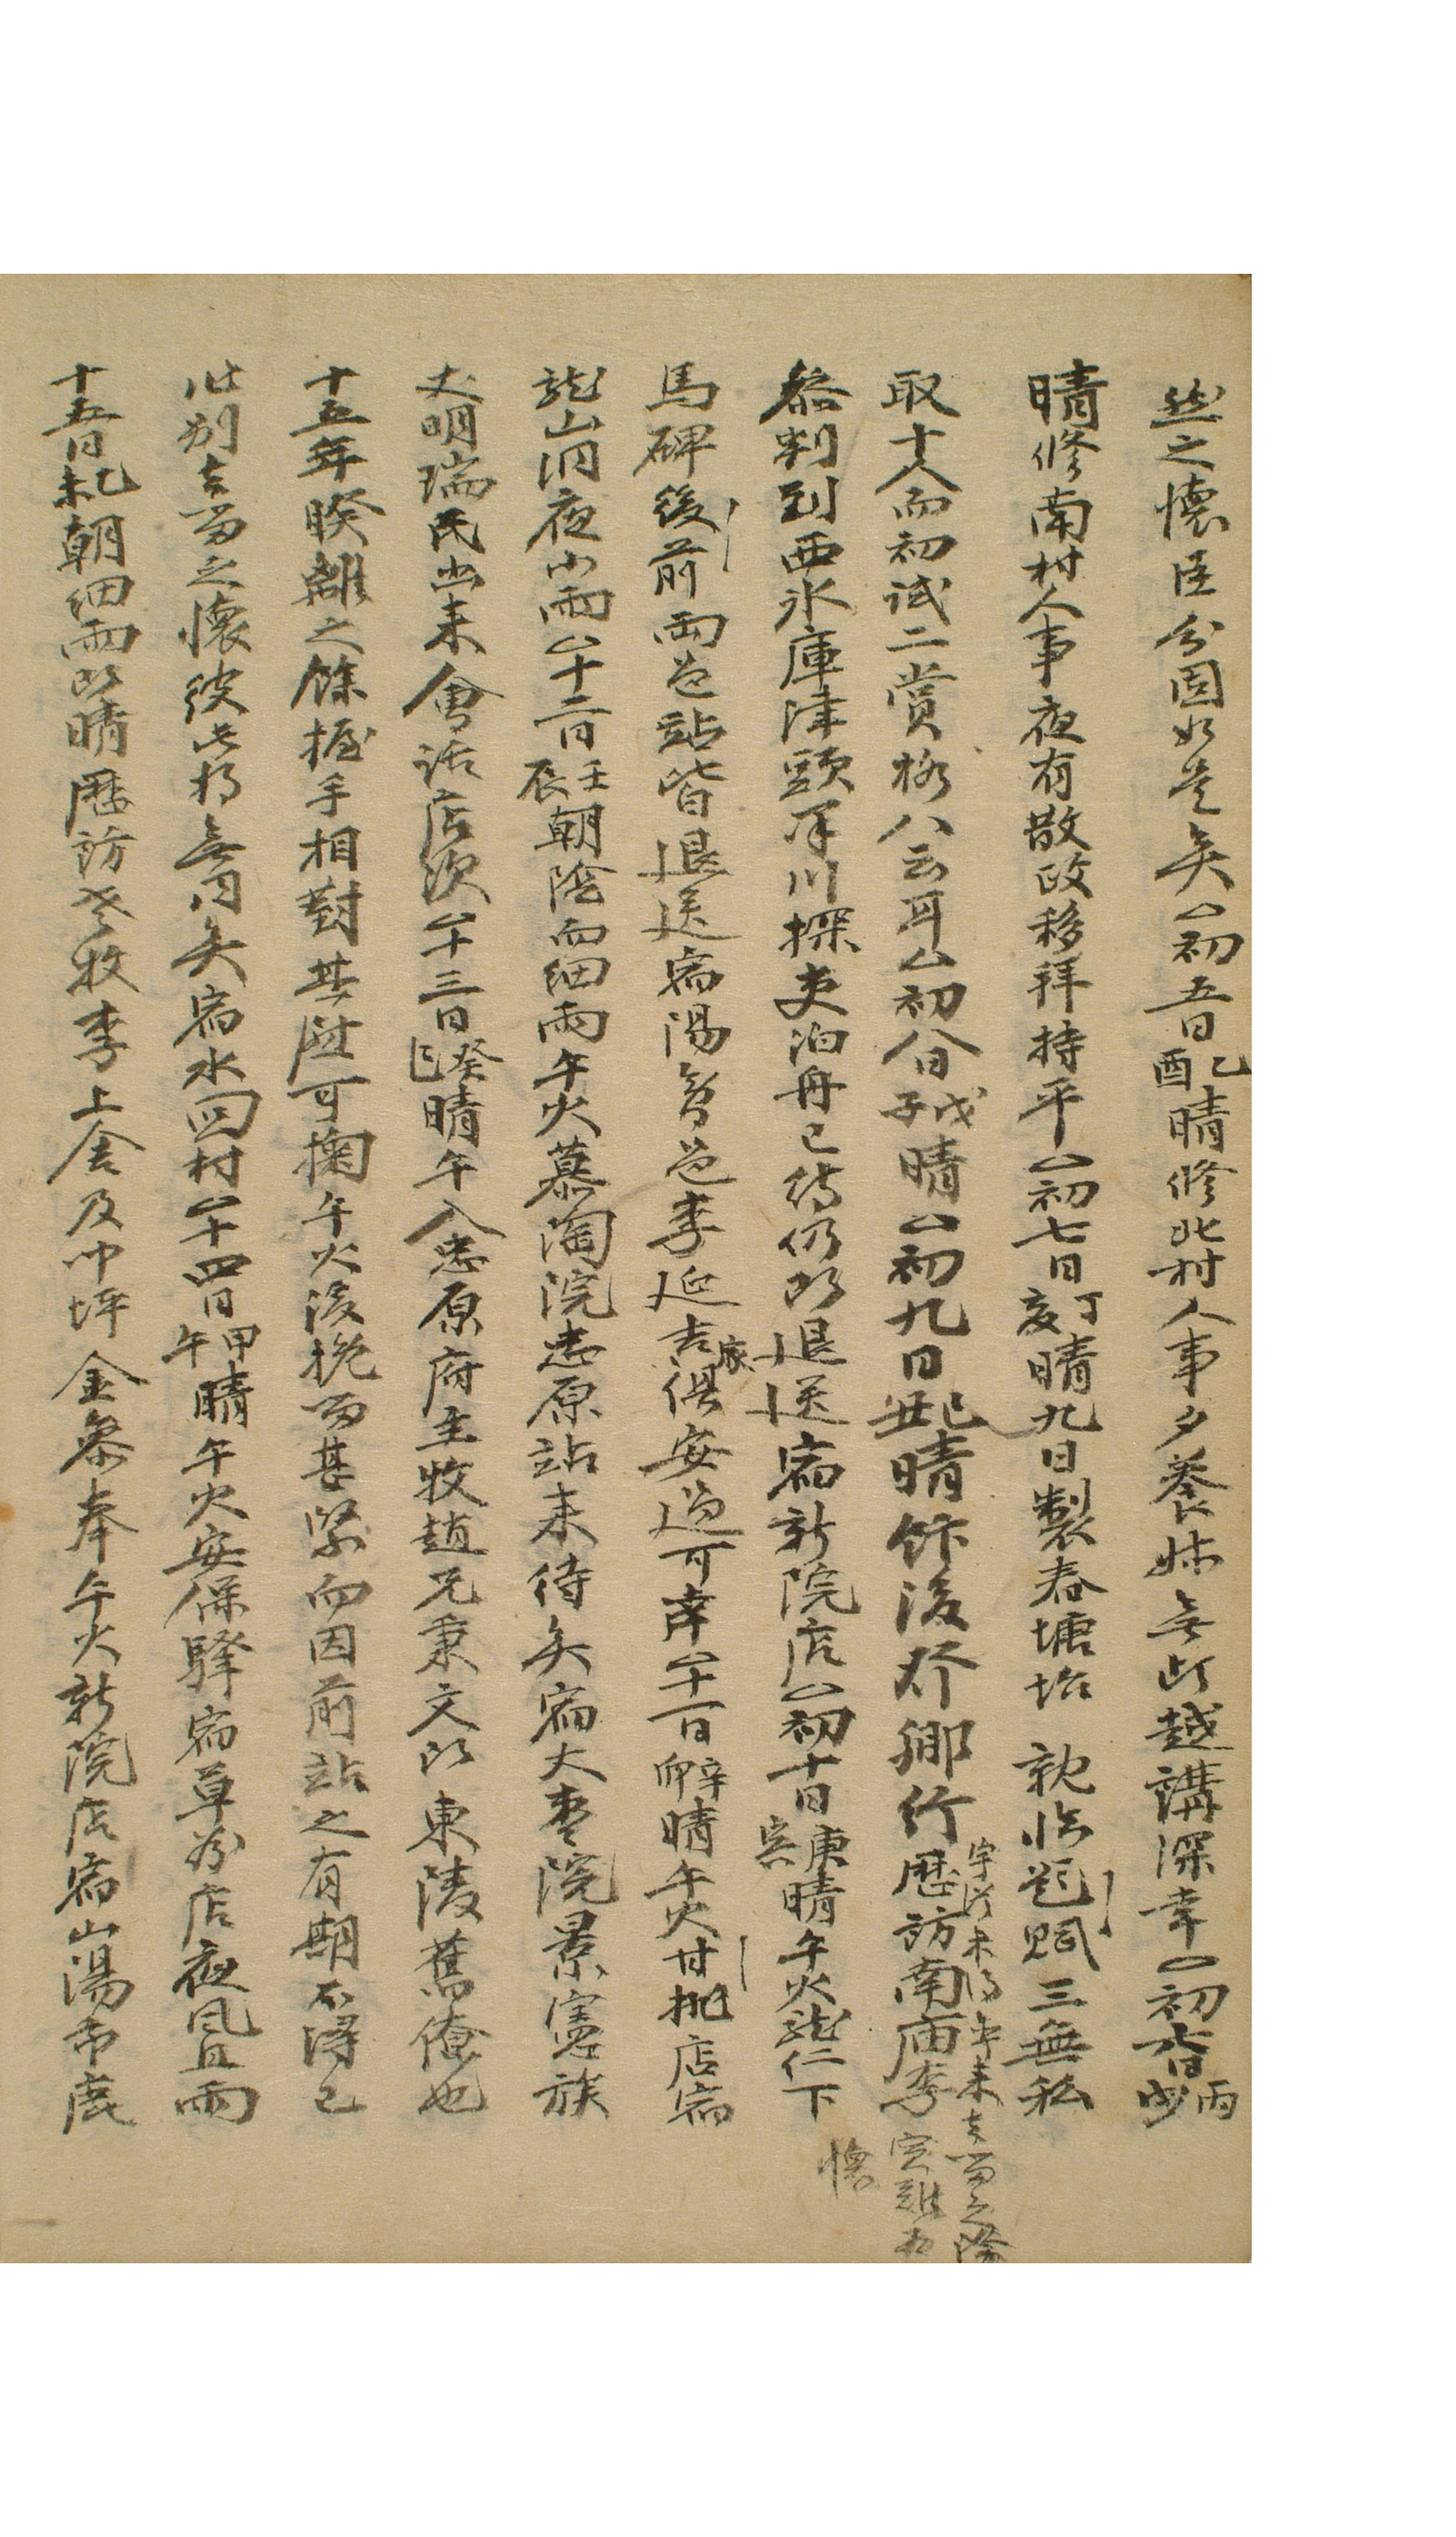 然之懷臣分固如是矣△初五日乙酉晴修北村人事夕養姉無頉越講深幸△初六日丙戌
晴修南村人事夜有散政移拜持平△初七日丁亥晴九日製春塘坮 親臨題賦三無私
取十人而初試二賞格八云耳△初八日戊子晴△初九日己丑晴飯後作鄕行歷訪南廟李
宇 未 年來去留之際實難為
懷
參判到西氷庫津頭 川探吏泊舟已待仍即退送宿新院店△初十日庚寅晴午火龍仁下
馬碑後前兩邑站皆退送宿陽智邑李延吉家俱安過可幸△十一日辛卯晴午火甘桃店宿
龍山洞夜小雨△十二日壬辰朝陰而細雨午火慕陶院忠原站來待矣宿大枣院景憲族
丈明瑞民出來會話店次△十三日癸巳晴午入忠原府主牧趙兄秉文以東陵舊僚也
十五年暌離之餘握手相對其 可掬午火後挽留甚緊而因前站之有期不得已
作別去留之懷彼此將無同矣宿水回村△十四日甲午晴午火安保驛宿草谷店夜風且雨
十五日乙未朝細雨即晴歷訪 牧李上舍及中坪金參奉午火新院店宿山陽市底